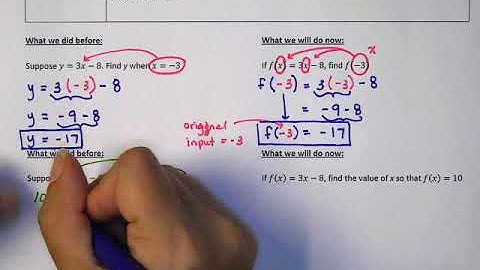 What we did before:
Suppose y = 3x − 8. Find y when x = −3
y = 3(−3) − 8
y = −9 − 8
y = −17
What we will do now:
x
If f(x) = 3x − 8, find f(−3)
f(−3) = 3(−3) − 8
= −9 − 8
original
input = −3
f(−3) = −17
What we did before:
Suppo
10
What we will do now:
If f(x) = 3x − 8, find the value of x so that f(x) = 10